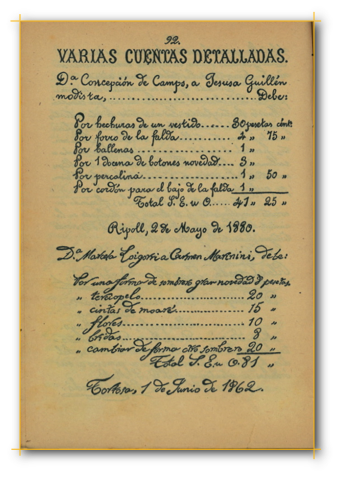 92.
VARIAS CUENTAS DETALLADAS.
D.ª Concepción de Camps, a Jesusa Guillén
modista,.............................. Debe:
Por hechuras de un vestido...... 30 pesetas cénts
Por forro de la falda............ 4 " 75 "
Por ballenas.................... 1 "
Por 1 docena de botones novedad.. 3 "
Por percalina................... 1 " 50 "
Por cordón para el bajo de la falda 1 "
Total S. E. u O... 41 " 25 "
Ripoll, 2 de Mayo de 1880.
D.ª a Carmen debe:
Por una forma de sombrero gran pesetas,
" terciopelo...................... 20 "
" cintas de moaré................. 15 "
" flores.......................... 10 "
" bridas.......................... 8 "
" cambiar de forma otro sombrero 20 "
Total S. E. u O. 81 "
Tortosa, 1 de Junio de 1862.